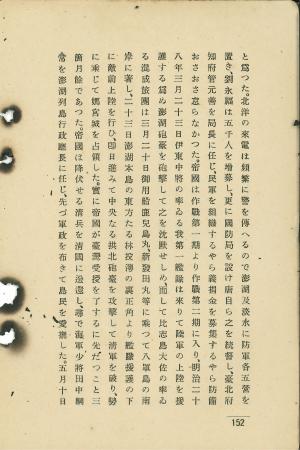 と爲つた。北洋の來電は頻繁に警を傳へるので澎湖及淡水に防軍各五營を
置き、劉永福は五千人を增募し、更に國防局を設け唐自ら之を統督し、臺北府
知府管元善を局長に任じ、民軍を組織するやら義捐金を募集するやら防備
おさおさ怠らなかつた。帝國は作戰第一期より作戰第二期に入り、明治二十
八年三月二十三日伊東中將の率ゐる我第一艦隊は來りて陸軍の上陸を援
護する爲め澎湖砲臺を砲擊して之を沈默せしめ、而して比志島大佐の率ゐ
る混成旅團は三月二十日御用船鹿兒島丸、新發田丸等に乘つて八罩島の南
岸に著し、二十三日澎湖本島の東方たる林投灣の裏正角より艦隊援護の下
に敵前上陸を行ひ、卽日進みて中央なる拱北砲臺を攻擊して淸軍を破り、勢
に乘じて媽宮城を占領した。實に帝國が臺灣受授を了するに先だつこと三
箇月餘であつた。帝國は降伏せる淸兵を淸國に送還し、尋で海軍少將田中綱
常を澎湖列島行政廳長に任じ、先づ軍政を布きて島民を愛撫した。五月十日
152